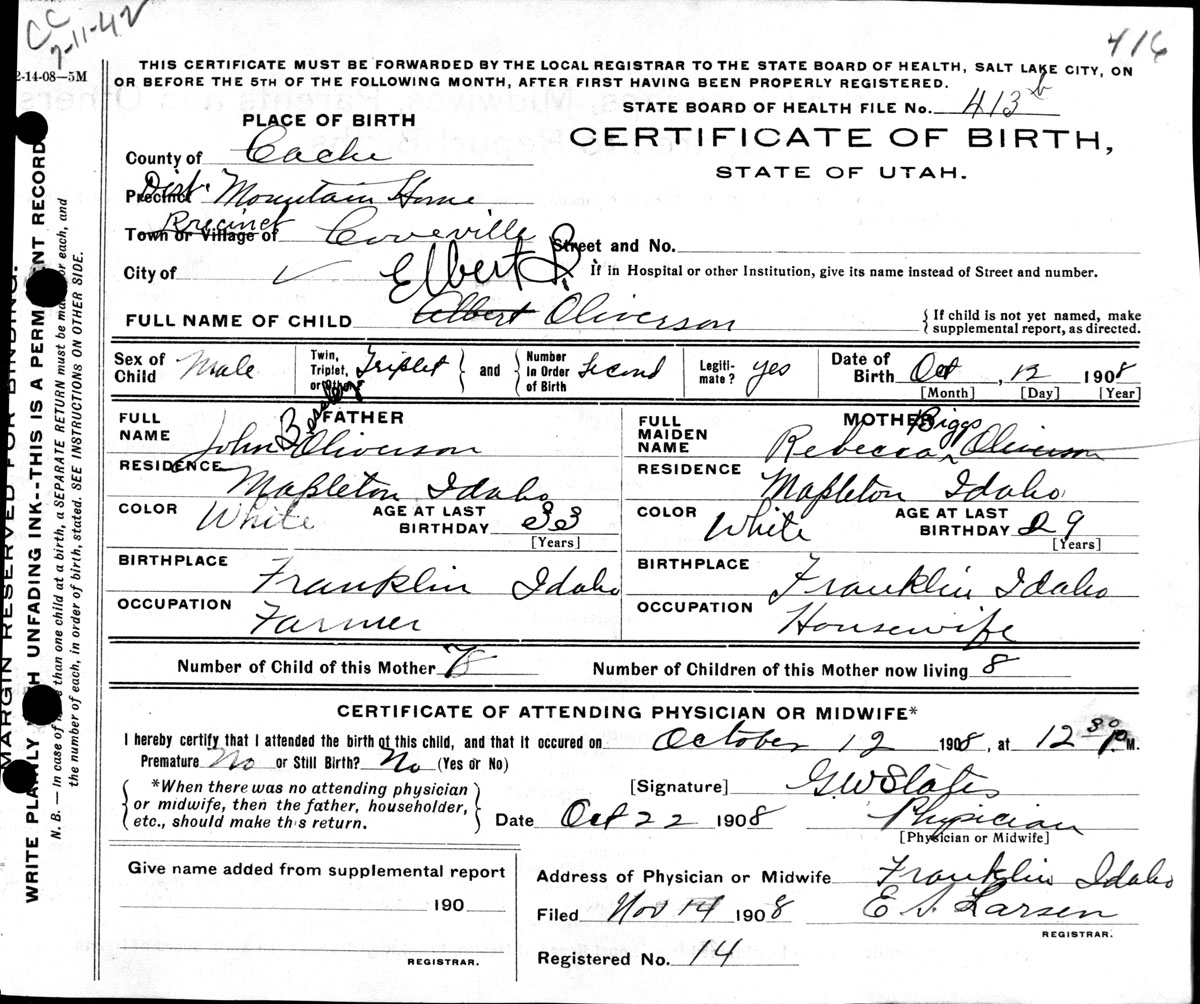 CC
7-11-42
416
2-14-08—5M
THIS CERTIFICATE MUST BE FORWARDED BY THE LOCAL REGISTRAR TO THE STATE BOARD OF HEALTH, SALT LAKE CITY, ON
OR BEFORE THE 5TH OF THE FOLLOWING MONTH, AFTER FIRST HAVING BEEN PROPERLY REGISTERED.
STATE BOARD OF HEALTH FILE No. 413 b
PLACE OF BIRTH
CERTIFICATE OF BIRTH,
STATE OF UTAH.
County of Cache
Dist.
Precinct Mountain Home
Precinct
Town or Village of Coveville Street and No.
City of ✓ Elbert B. If in Hospital or other Institution, give its name instead of Street and number.
FULL NAME OF CHILD Albert Oliverson { If child is not yet named, make
supplemental report, as directed.
Sex of Child Male Twin, Triplet, or Other Triplet } and { Number In Order of Birth Second Legiti-mate? yes Date of Birth Oct, 12 1908
[Month] [Day] [Year]
FATHER MOTHER
FULL NAME John Oliverson FULL MAIDEN NAME Rebecca Biggs Oliverson
RESIDENCE Mapleton Idaho RESIDENCE Mapleton Idaho
COLOR White AGE AT LAST BIRTHDAY 33 [Years] COLOR White AGE AT LAST BIRTHDAY 29 [Years]
BIRTHPLACE Franklin Idaho BIRTHPLACE Franklin Idaho
OCCUPATION Farmer OCCUPATION Housewife
Number of Child of this Mother Number of Children of this Mother now living 8
CERTIFICATE OF ATTENDING PHYSICIAN OR MIDWIFE*
I hereby certify that I attended the birth of this child, and that it occured on October 12 1908, at 12 30 P. M.
Premature No or Still Birth? No (Yes or No)
*When there was no attending physician
or midwife, then the father, householder,
etc., should make this return.
[Signature] G.W States
Date Oct 22 1908 Physician
[Physician or Midwife]
Give name added from supplemental report
190
REGISTRAR.
Address of Physician or Midwife Franklin Idaho
Filed Nov 14 1908 E S. Larsen
REGISTRAR.
Registered No. 14
MARGIN RESERVED FOR BINDING.
WRITE PLAINLY WITH UNFADING INK--THIS IS A PERMANENT RECORD.
N. B. — In case of more than one child at a birth, a SEPARATE RETURN must be made for each, and
the number of each, in order of birth, stated. SEE INSTRUCTIONS ON OTHER SIDE.